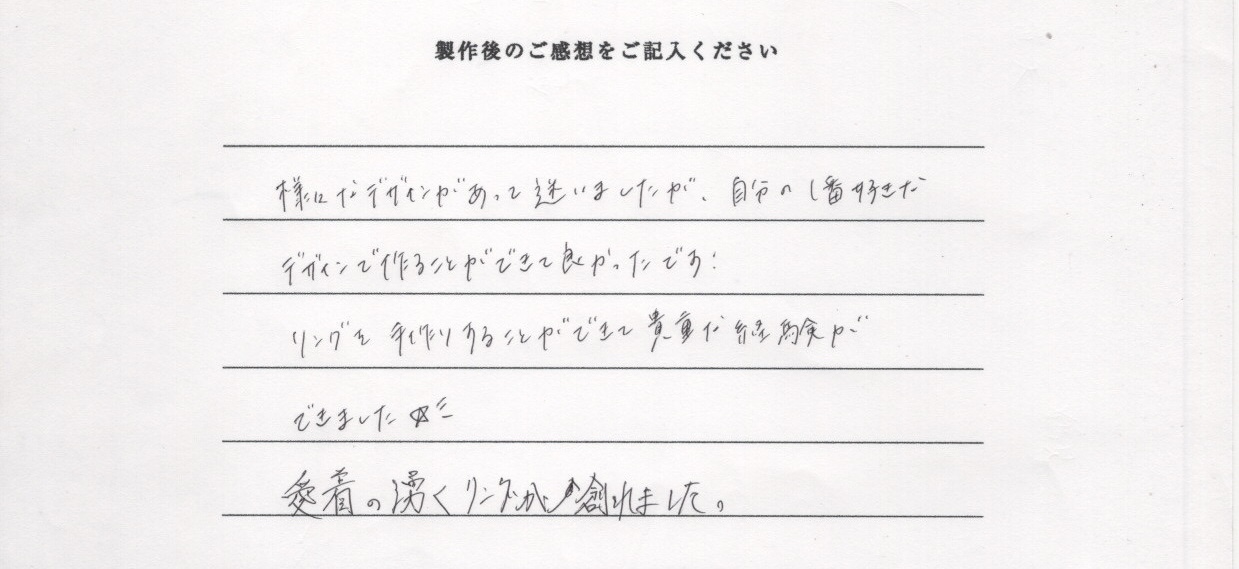 製作後のご感想をご記入ください
様々なデザインがあって迷いましたが、自分の1番好きな
デザインで作ることができて良かったです!
リングを手作りすることができて貴重な経験が
できました☆ミ
愛着の湧くリングが創れました。